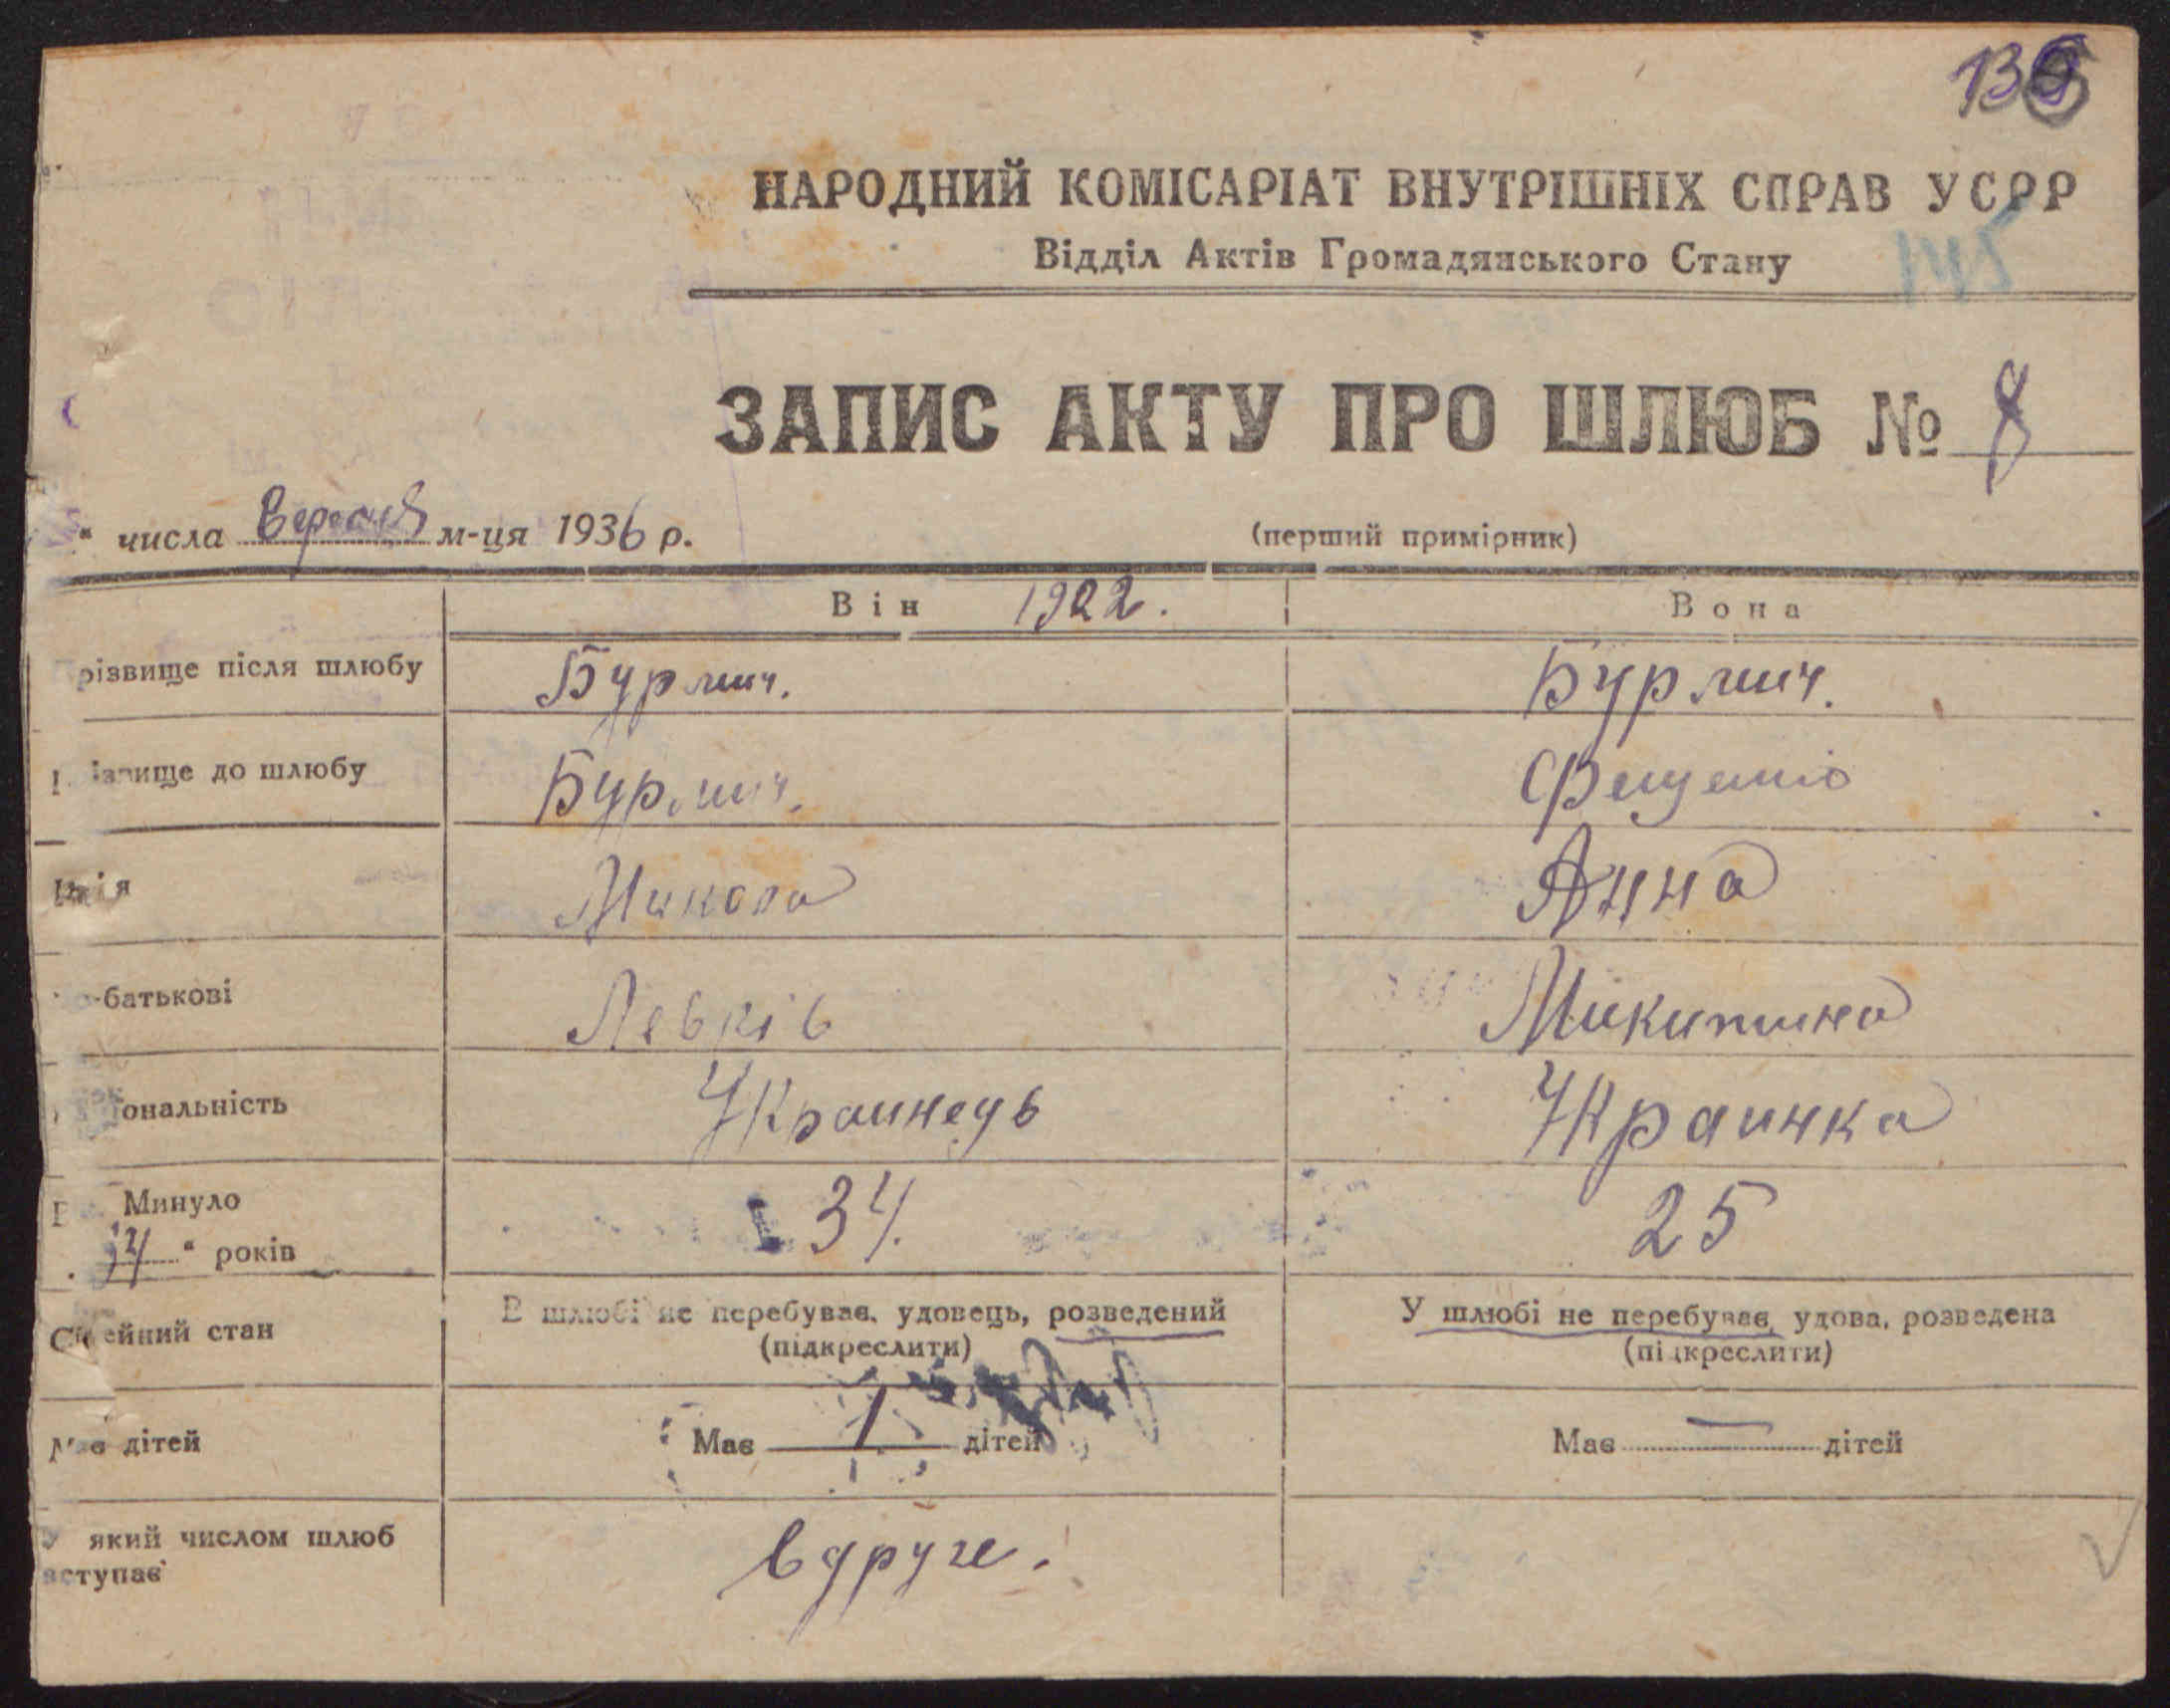 НАРОДНИЙ КОМІСАРІАТ ВНУТРІШНІХ СПРАВ УСРР
Відділ Актів Громадянського Стану
145
ЗАПИС АКТУ ПРО ШЛЮБ № 8
" числа Вересня м-ця 1936 р.
(перший примірник)
Він 1922. Вона
різвище після шлюбу Бурмич. Бурмич.
ізвище до шлюбу Бурмич.
Імія Микола Анна
-батькові Левків Микитина
ональність Украинець Украинка
Минуло
34 " років 34. 25
Сімейний стан В шлюбі не перебуває, удовець, розведений У шлюбі не перебуває, удова, розведена
(підкреслити) (підкреслити)
Має дітей Має 1 дітей Має — дітей
У який числом шлюб вдруге.
вступає